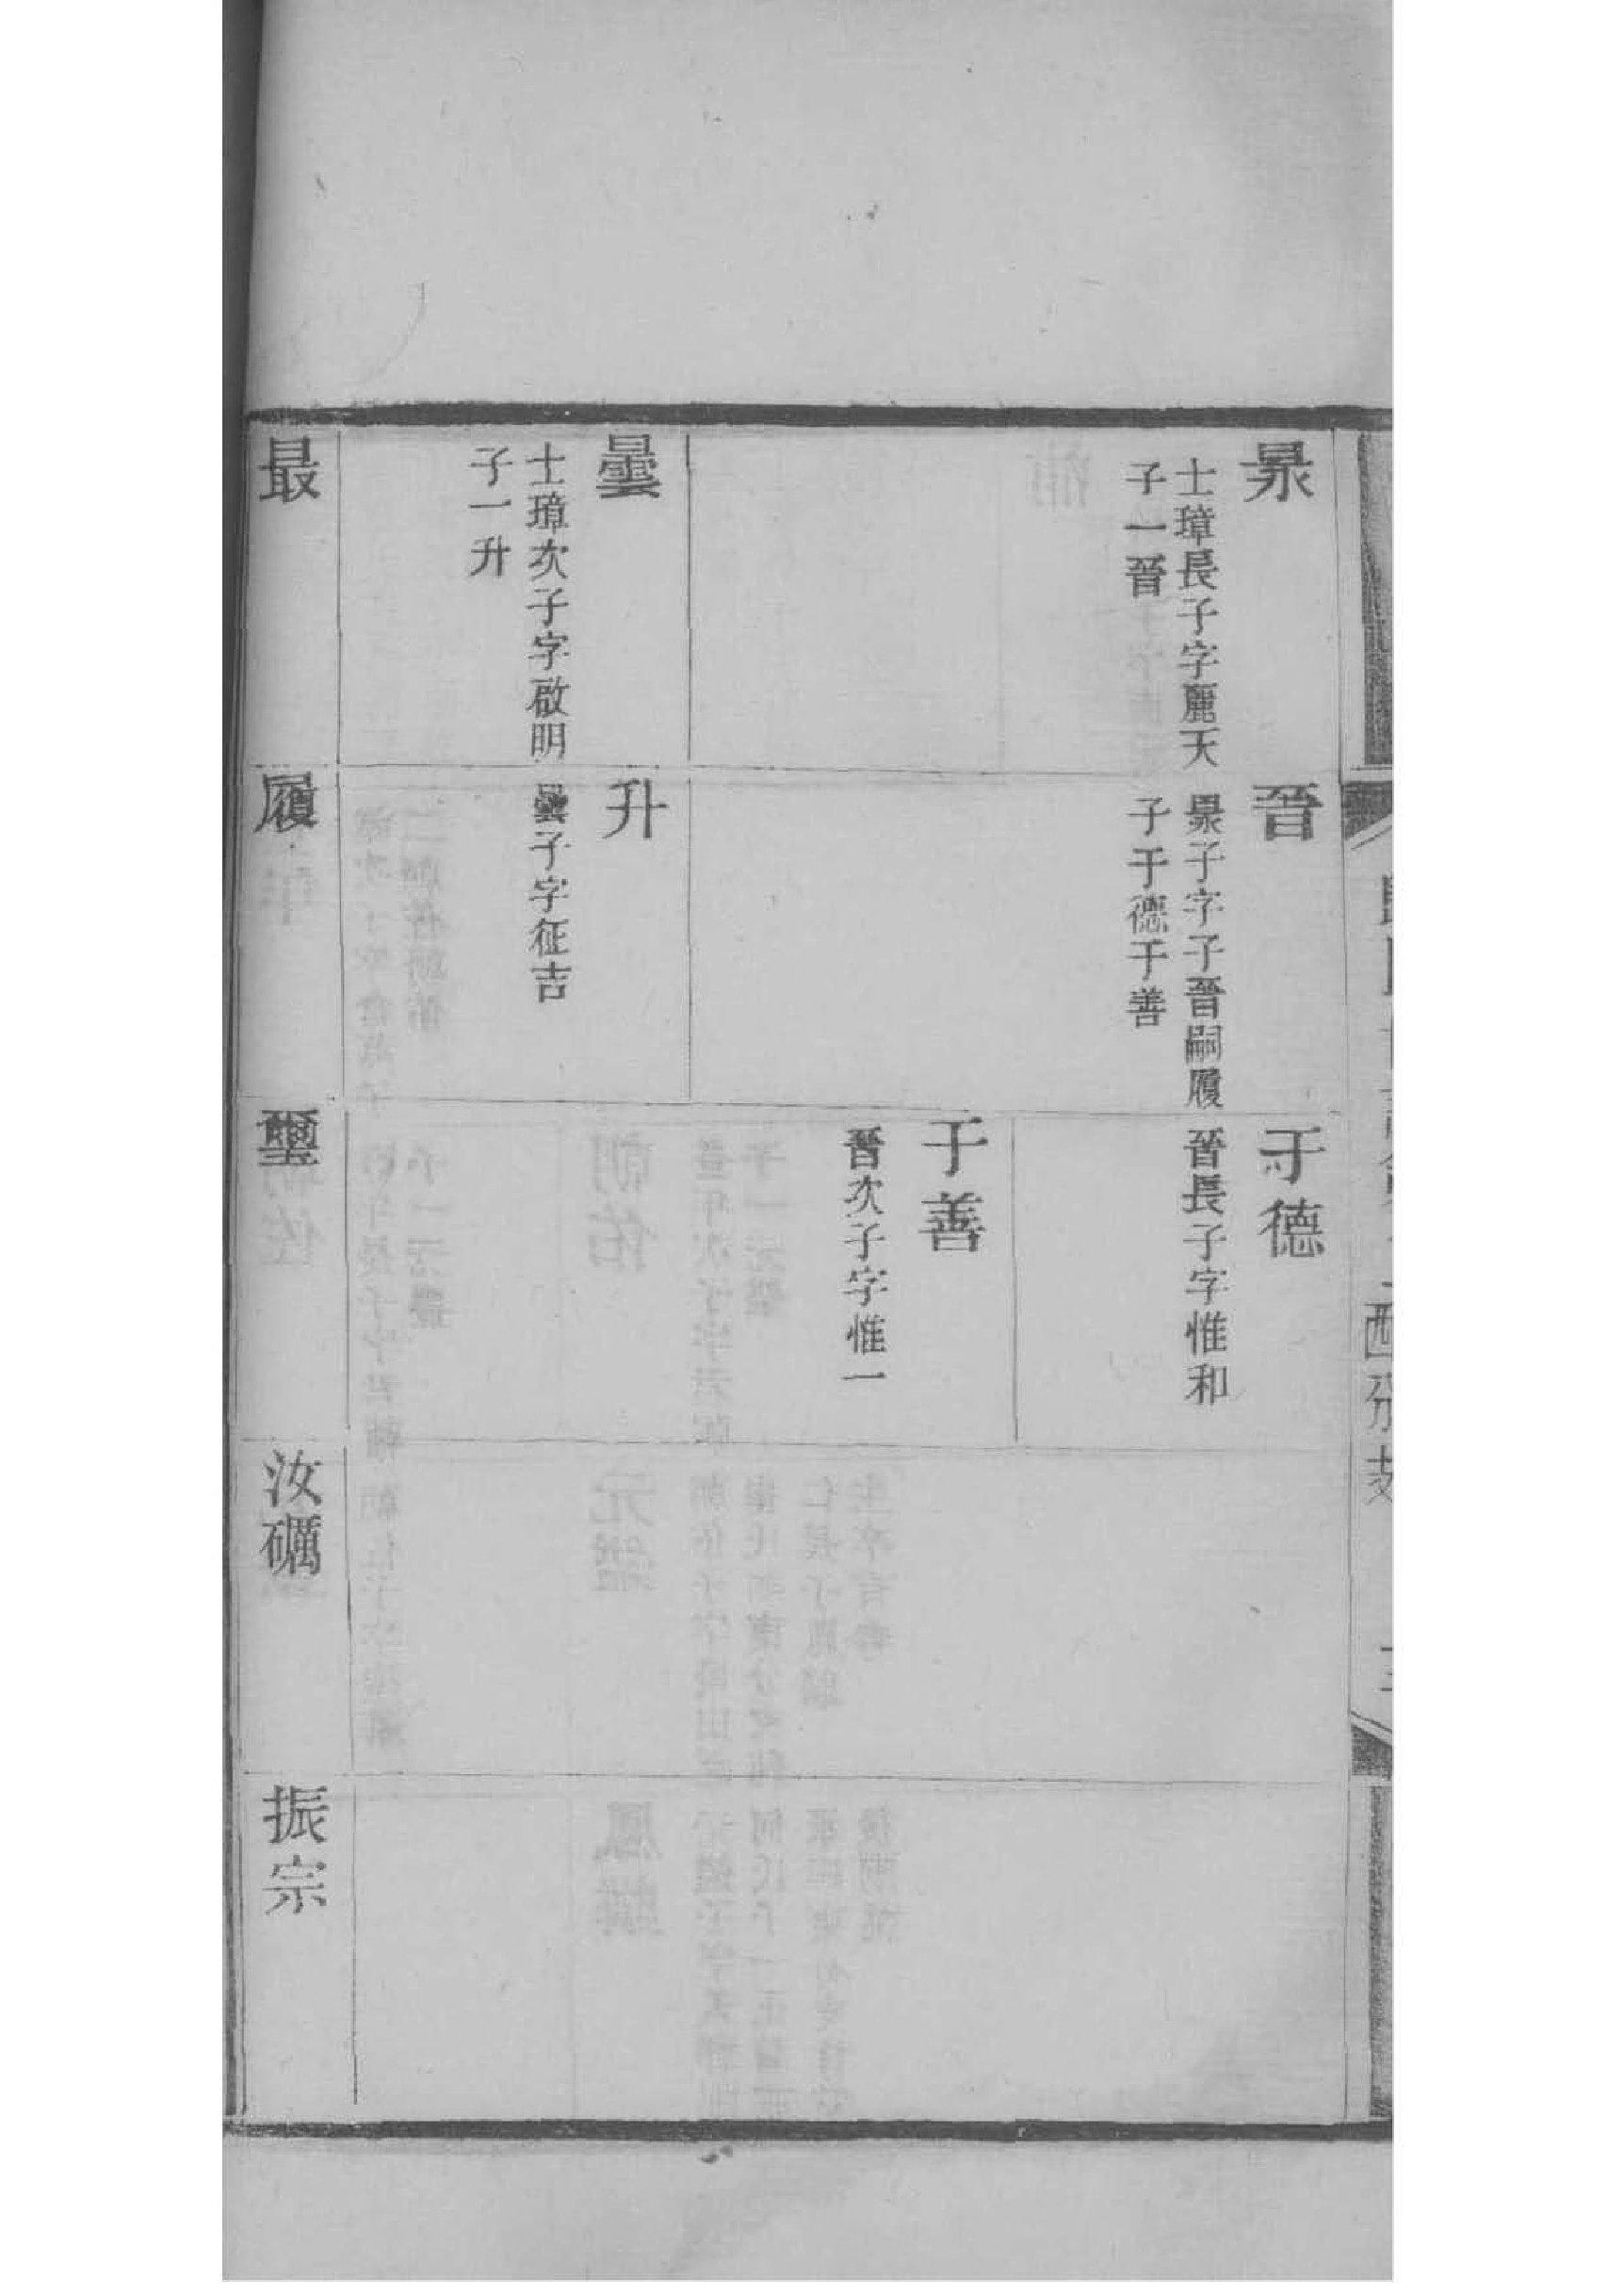 士璋長子字麗天
子一晉
晉
晃子字子晉嗣履
子于德于善
于德
晉長子字惟和
于善
晉次子字惟一
曇
士璋次子字啟明
子一升
升
曇子字征吉
最
履
璽
汝礪
振宗
西分支